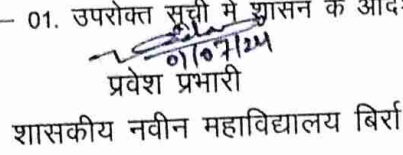 – 01. उपरोक्त सूची मे शासन के
01/07/24
प्रवेश प्रभारी
शासकीय नवीन महाविद्यालय बिर्रा